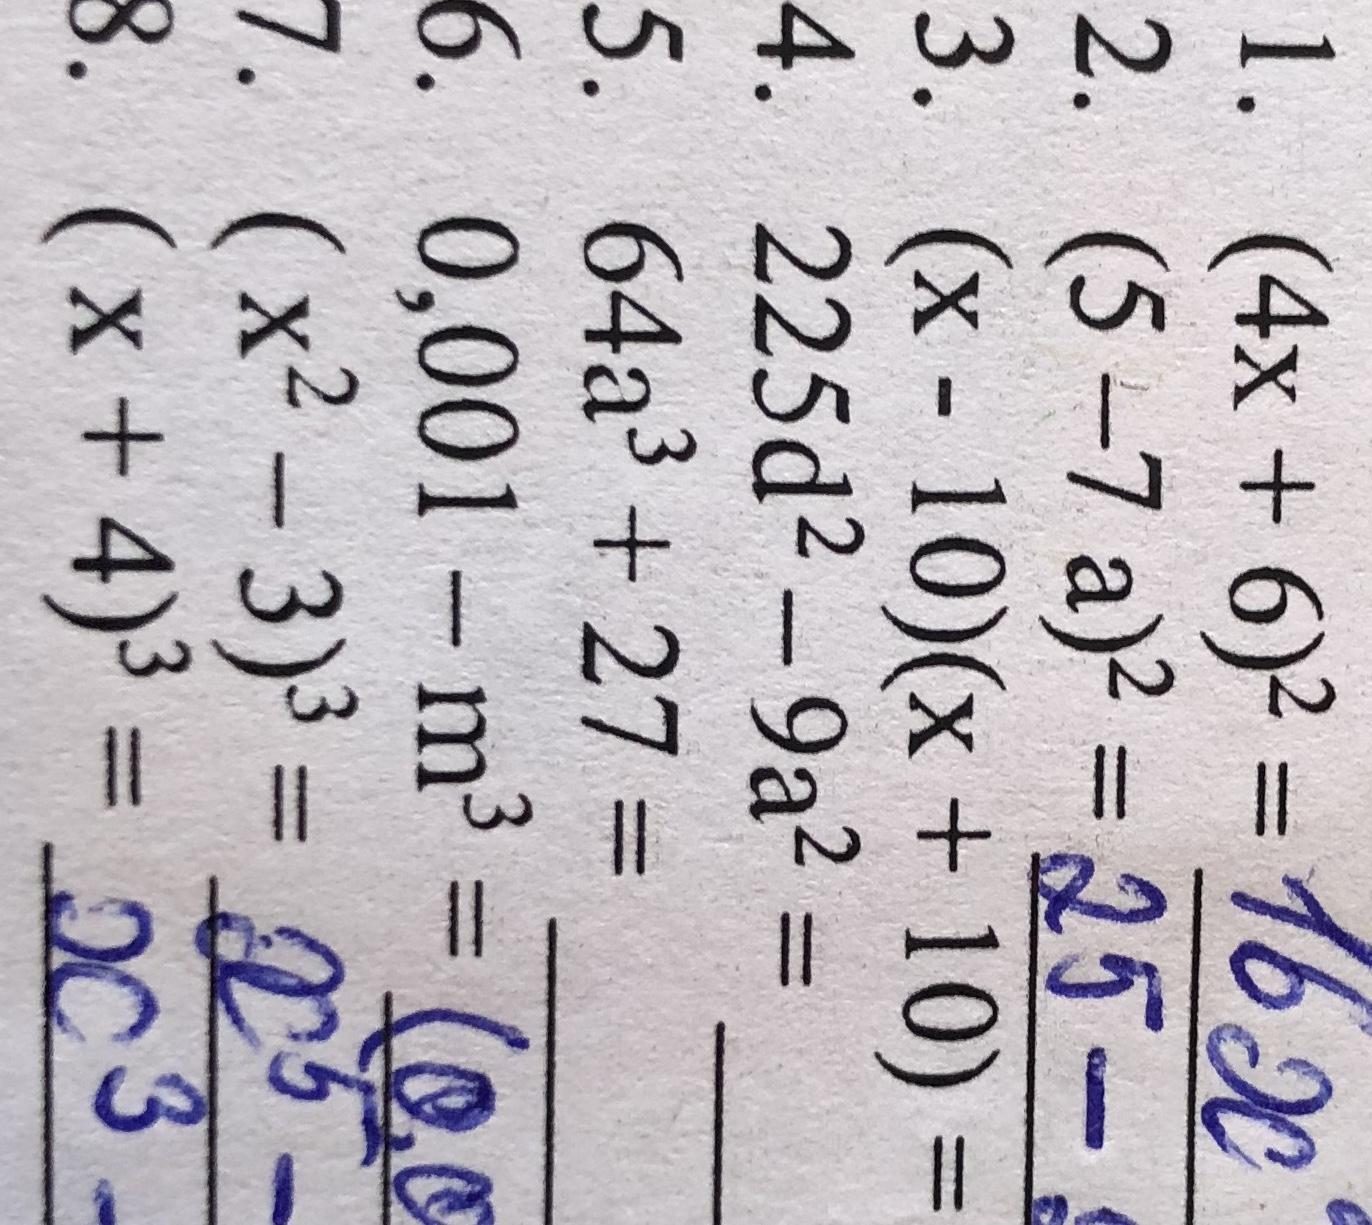 1. (4x + 6)² = 16x
2. (5 – 7 a)² = 25 –
3. (x - 10)(x + 10) =
4. 225d² – 9a² =
5. 64a³ + 27 =
6. 0,001 – m³ = (0,0
7. (x² – 3)³ = x⁵ –
8. (x + 4)³ = x³ –